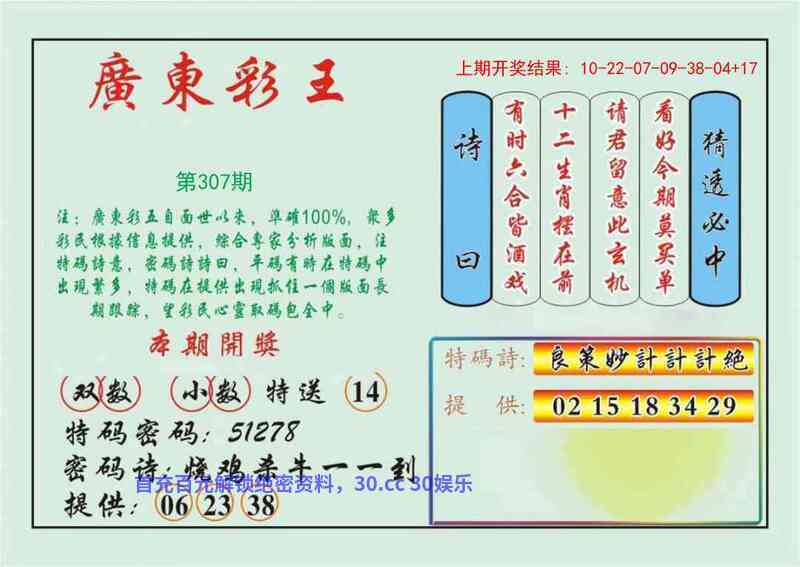 廣東彩王
第307期
注：廣東彩五自面世以來，準確100%，衆多
彩民根據信息提供，綜合專家分析版面，注
特碼詩意，密碼詩詩曰，平碼有時在特碼中
出現繁多，特碼在提供出現抓住一個版面長
期跟踪，望彩民心靈取碼包全中。
本期開獎
双数 小数 特送 14
特码密码：51278
密码诗：烧鸡杀牛一一到
首充百元解锁绝密资料，30.cc 30娱乐
提供：06 23 38
上期开奖结果：10-22-07-09-38-04+17
猜透必中
看好今期莫买单
请君留意此玄机
十二生肖摆在前
有时六合皆酒戏
诗曰
特碼詩：良策妙計計計絕
提供：02 15 18 34 29